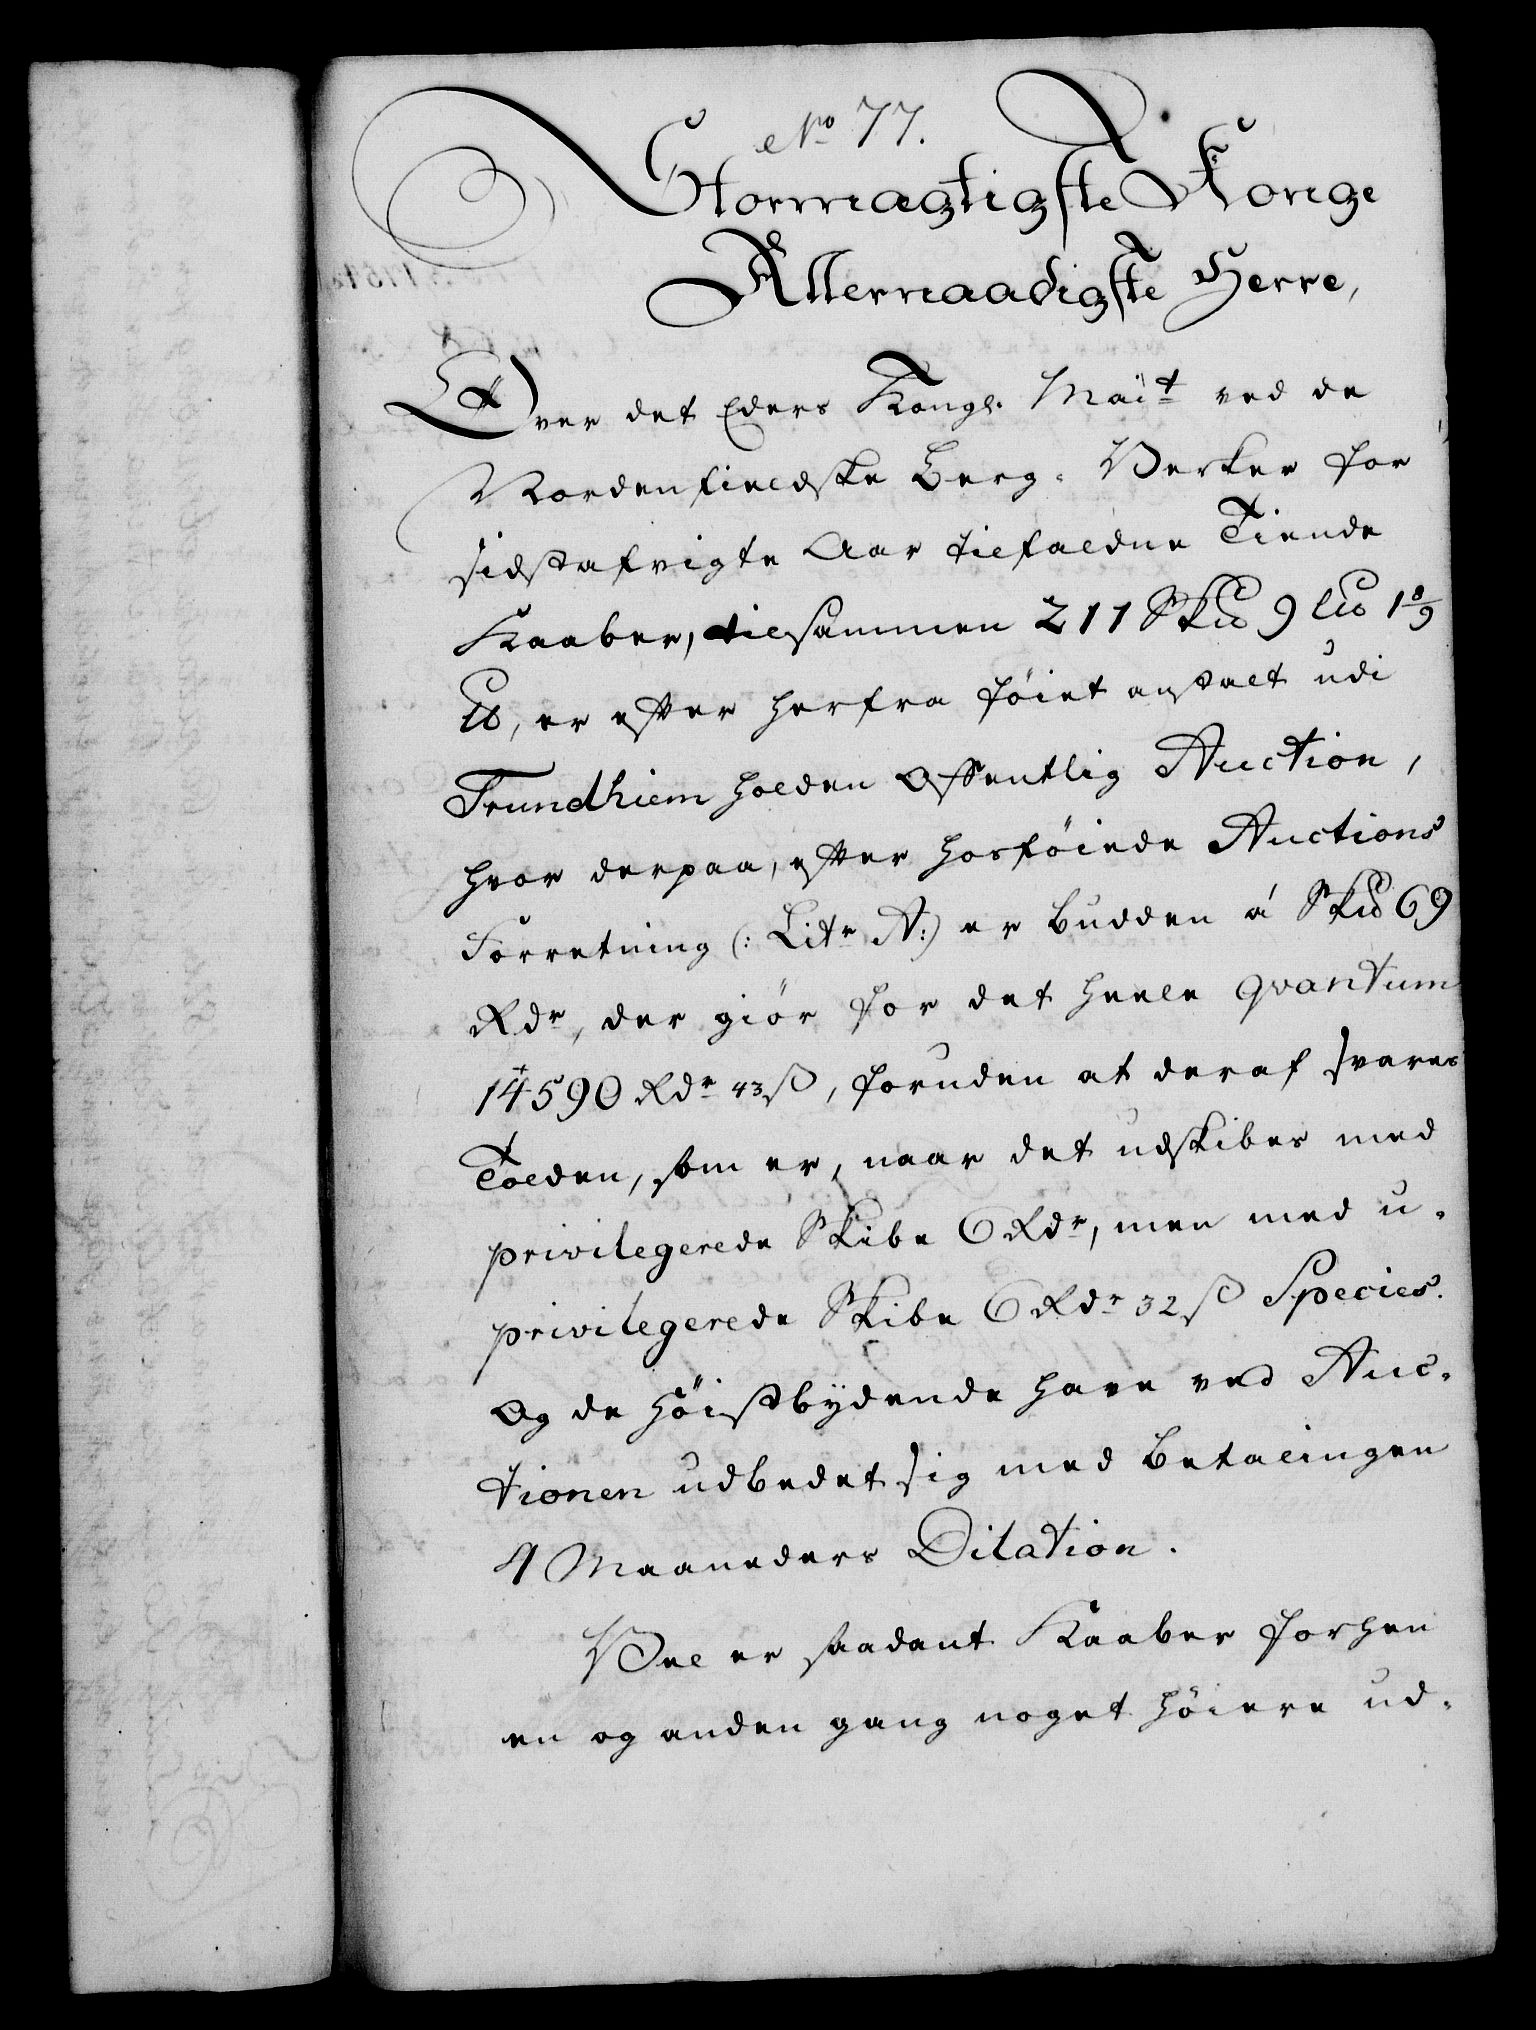 No 77.
Stormægtigste Konge
Allernaadigste Herre,
Over det Eders Kongl. Maÿt ved de
Nordenfieldske Berg-Verker for
sidstafvigte Aar tilfaldne Tiende
Kaaber, tilsammen 211 Sk℔ 9 L℔ 1 8/9
℔, er efter herfra föiet anstalt udi
Trundhiem holden Offentlig Auction,
hvor derpaa, efter hosföiede Auctions
Forretning (: Litr A:) er budden á Sk℔ 69
Rdr, der giör for det heele qvantum
14590 Rdr 43 ß, foruden at deraf svares
Tolden, som er, naar det udskibes med
privilegerede Skibe 6 Rdr, men med u-
privilegerede Skibe 6 Rdr 32 ß Species.
Og de höistbÿdende have ved Auc-
tionen udbedet sig med betalingen
4 Maaneders Dilation.
Vel er saadant Kaaber forhen
en og anden gang noget höiere ud-